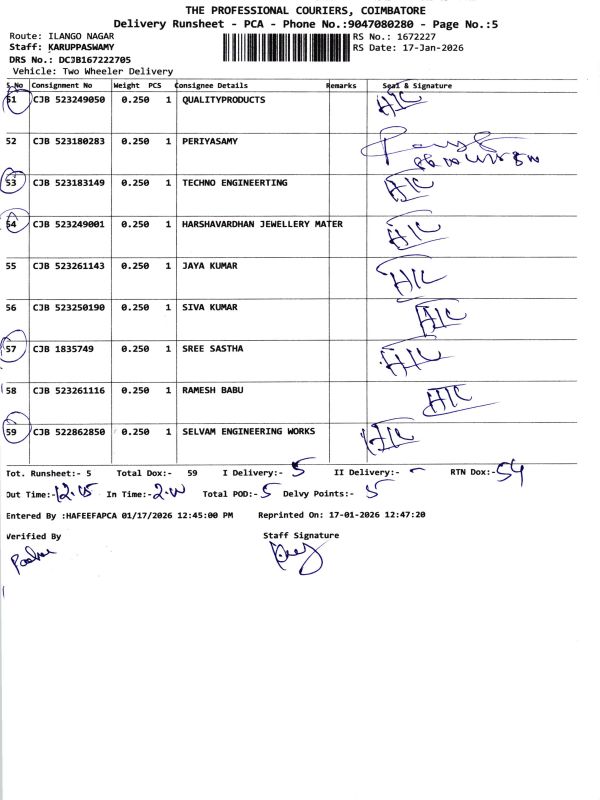 THE PROFESSIONAL COURIERS, COIMBATORE
Delivery Runsheet - PCA - Phone No.:9047080280 - Page No.:5
Route: ILANGO NAGAR RS No.: 1672227
Staff: KARUPPASWAMY RS Date: 17-Jan-2026
DRS No.: DCJB167222705
Vehicle: Two Wheeler Delivery
S.No Consignment No Weight PCS Consignee Details Remarks Seal & Signature
51 CJB 523249050 0.250 1 QUALITYPRODUCTS H/C
52 CJB 523180283 0.250 1 PERIYASAMY
53 CJB 523183149 0.250 1 TECHNO ENGINEERTING H/C
54 CJB 523249001 0.250 1 HARSHAVARDHAN JEWELLERY MATER H/C
55 CJB 523261143 0.250 1 JAYA KUMAR H/C
56 CJB 523250190 0.250 1 SIVA KUMAR H/C
57 CJB 1835749 0.250 1 SREE SASTHA H/C
58 CJB 523261116 0.250 1 RAMESH BABU H/C
59 CJB 522862850 0.250 1 SELVAM ENGINEERING WORKS H/C
Tot. Runsheet:- 5 Total Dox:- 59 I Delivery:- 5 II Delivery:- - RTN Dox:- 54
Out Time:- In Time:- Total POD:- 5 Delvy Points:- 5
Entered By :HAFEEFAPCA 01/17/2026 12:45:00 PM Reprinted On: 17-01-2026 12:47:20
Verified By Staff Signature